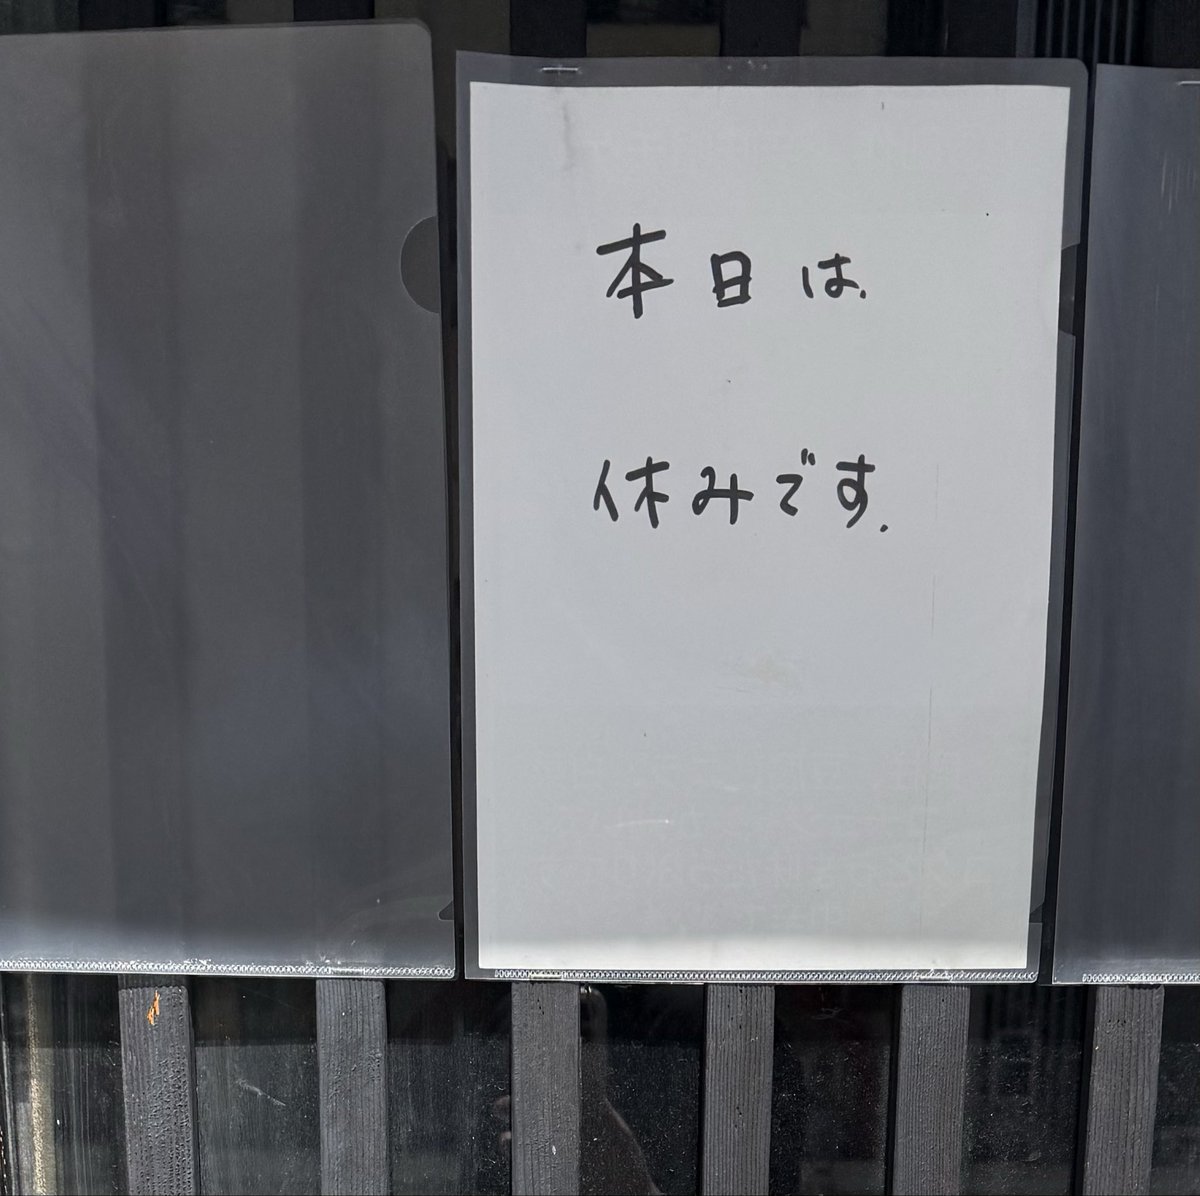 本日は.
休みです.